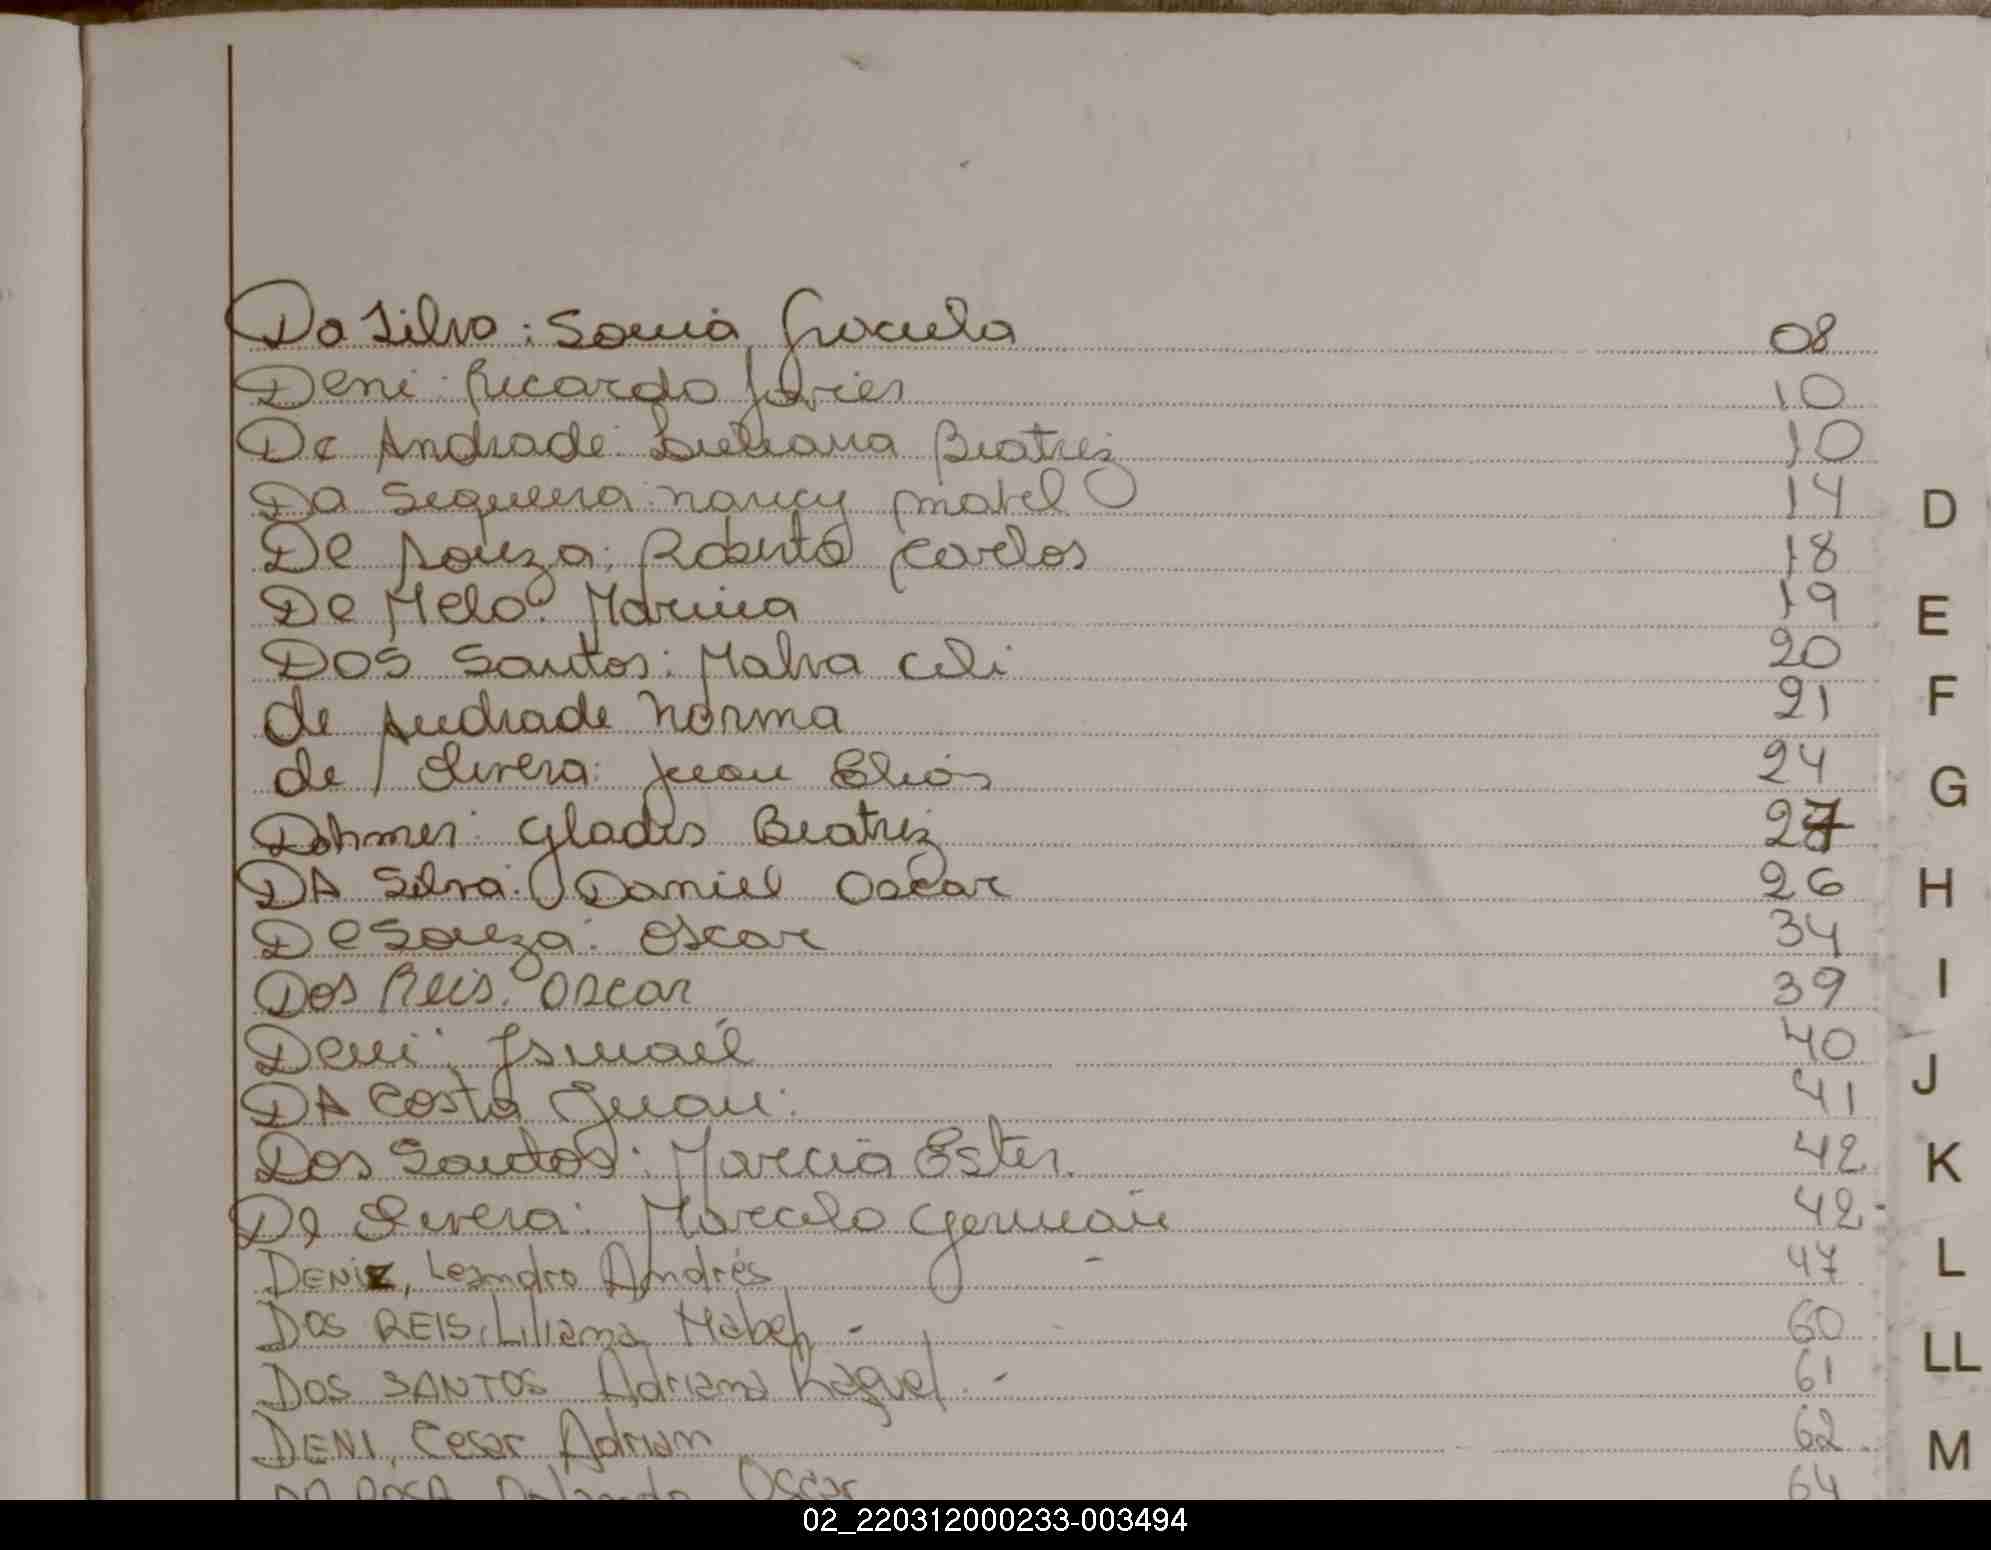 Da Silva: Sonia Graciela 08
Deni: Ricardo Javier 10
De Andrade: Luciana Beatriz 10
Da Sequeira: nancy mabel 14
De Souza: Roberto Carlos 18
De Melo: Marina 19
DOS Santos: Malva Celi 20
de Andrade Norma 21
de Olivera: Juan Elias 24
Dohmer: Gladis Beatriz 27
DA Silva: Daniel Oscar 26
De Souza: Oscar 34
Dos Reis: Oscar 39
Deni: Ismael 40
DA Costa Juan: 41
Dos Santos: Marcia Ester. 42
De Olivera: Marcelo German 42
DENIZ, Leandro Andrés - 47
DOS REIS, Liliana Mabel - 60
DOS SANTOS Adriana Raquel. - 61
DENI, Cesar Adrian 62
DA ROSA Oscar 64
D
E
F
G
H
I
J
K
L
LL
M
02_220312000233-003494